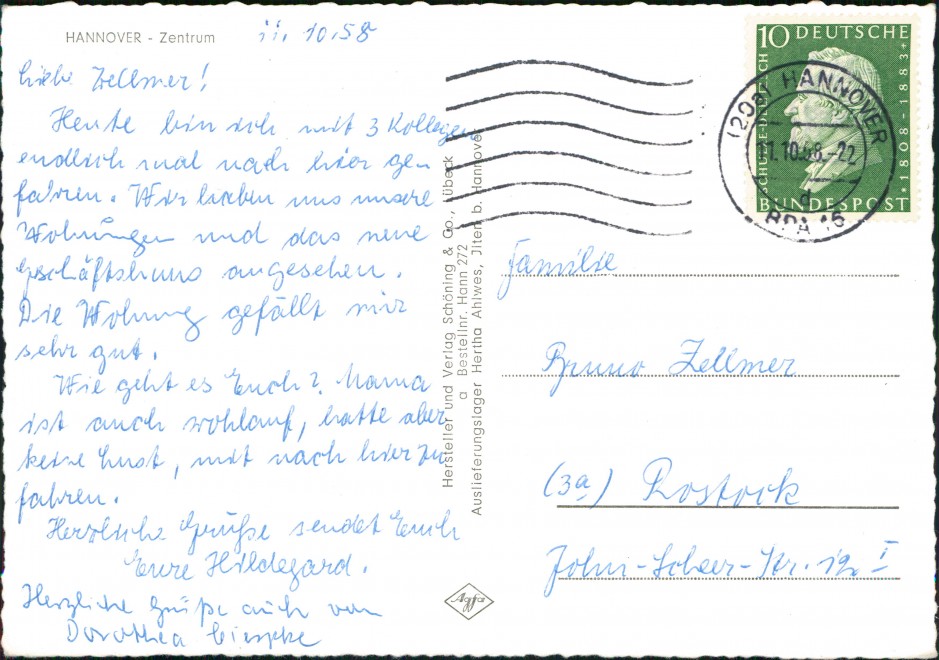 HANNOVER - Zentrum
11. 10. 58
Liebe Zellmer!
Heute bin ich mit 3 Kollegen
endlich mal nach hier ge-
fahren. Wir haben uns unsere
Wohnungen und das neue
Geschäftshaus angesehen.
Die Wohnung gefällt mir
sehr gut.
Wie geht es Euch? Mama
ist auch wohlauf, hatte aber
keine Lust, mit nach hier zu
fahren.
Herzliche Grüße sendet Euch
Eure Hildegard.
Herzliche Grüße auch von
Dorothea
Hersteller und Verlag Schöning & Co., Lübeck
a Bestellnr. Hann 272
Auslieferungslager Hertha Ahlwes, Jlten b. Hannover
Agfa
10 DEUTSCHE
BUNDESPOST
SCHULZE-DELITZSCH
* 1808 - 1883 +
(20a) HANNOVER
11.10.58.-22
d
BPA 16
Familie
Bruno Zellmer
(3a) Rostock
John-Scheer-Str. 12 I